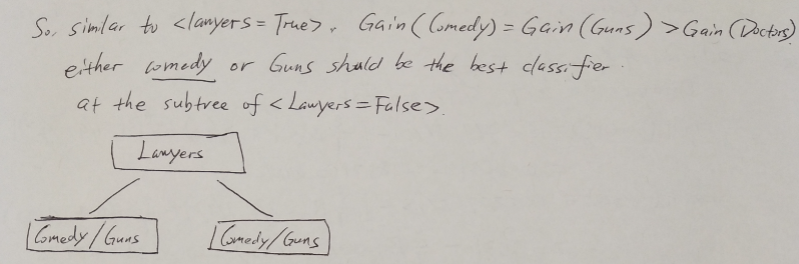 So, similar to <lawyers = True>, Gain(Comedy) = Gain(Guns) > Gain(Doctors)
either comedy or Guns should be the best classifier.
at the subtree of <Lawyers = False>.
Lawyers
Comedy/Guns
Comedy/Guns